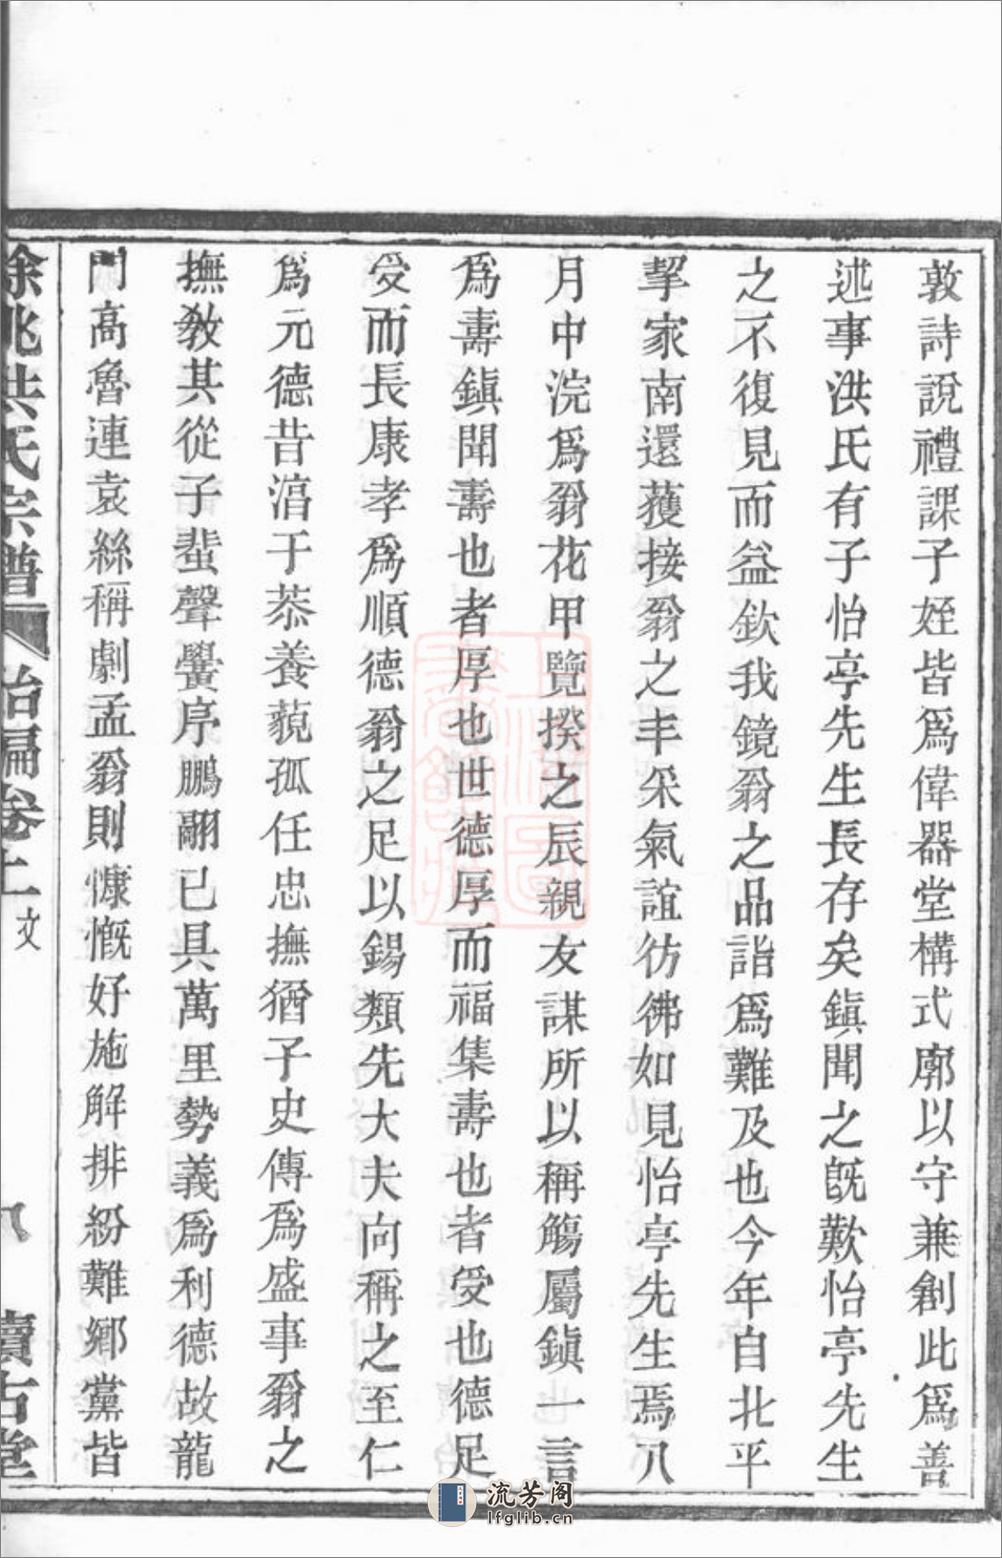 敦詩說禮課子姪皆爲偉器堂構式廓以守兼創此爲善
述事洪氏有子怡亭先生長存矣鎭聞之旣歎怡亭先生
之不復見而益欽我鏡翁之品詣爲難及也今年自北平
挈家南還獲接翁之丰采氣誼彷彿如見怡亭先生焉八
月中浣爲翁花甲覽揆之辰親友謀所以稱觴屬鎭一言
爲壽鎭聞壽也者厚也世德厚而福集壽也者受也德足
受而長康孝爲順德翁之足以錫類先大夫向稱之至仁
爲元德昔淯于恭養藐孤任忠撫猶子史傳爲盛事翁之
撫教其從子蜚聲黌序鵬翮已具萬里勢義爲利德故龍
門高魯連袁絲稱劇孟翁則慷慨好施解排紛難鄉黨皆
餘姚洪氏宗譜 貽編卷上 文 八 續古堂
流芳阁
lfglib.cn